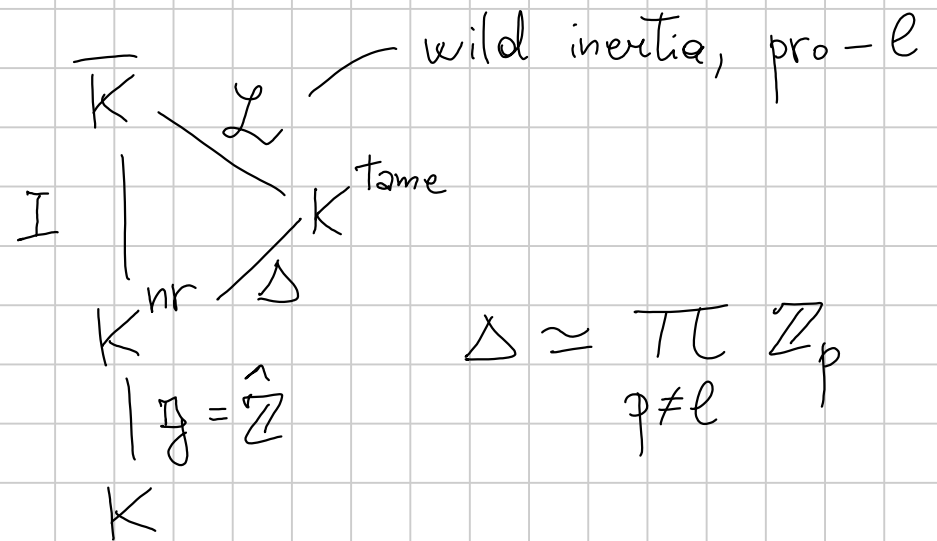 wild inertia, pro-ℓ
K̅ ℒ
K^tame
I
Δ
K^nr
Δ ≃ ∏_{p≠ℓ} ℤ_p
| 𝔤 = ℤ̂
K